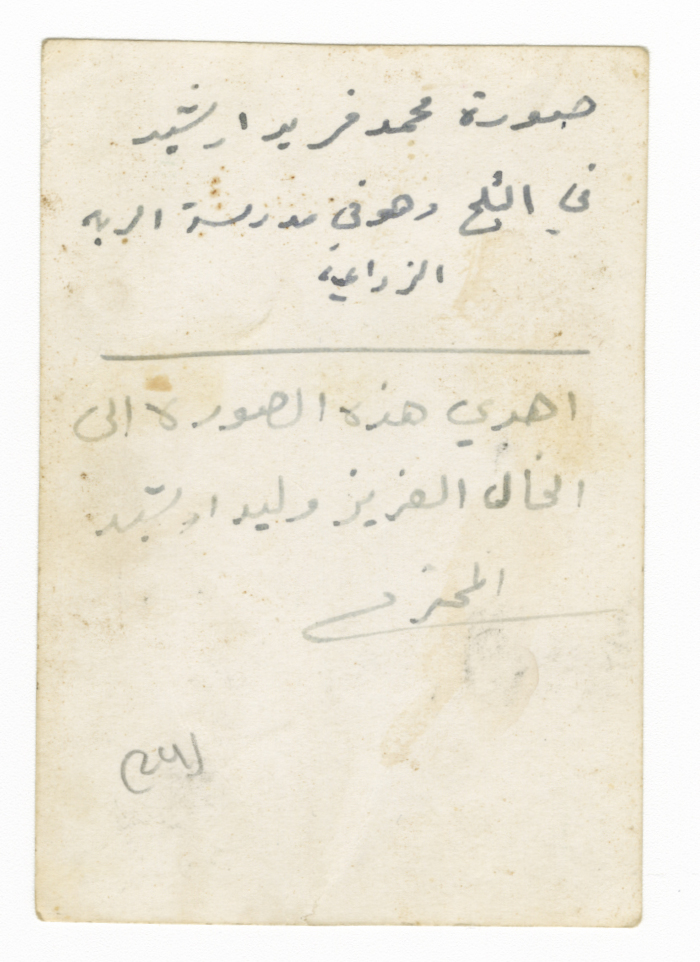 صورة محمد فريد ارشيد
في الثلج وهو في مدرسة الربه
الزراعيه
اهدي هذه الصورة الى
الخال العزيز وليد ارشيد
المحترم